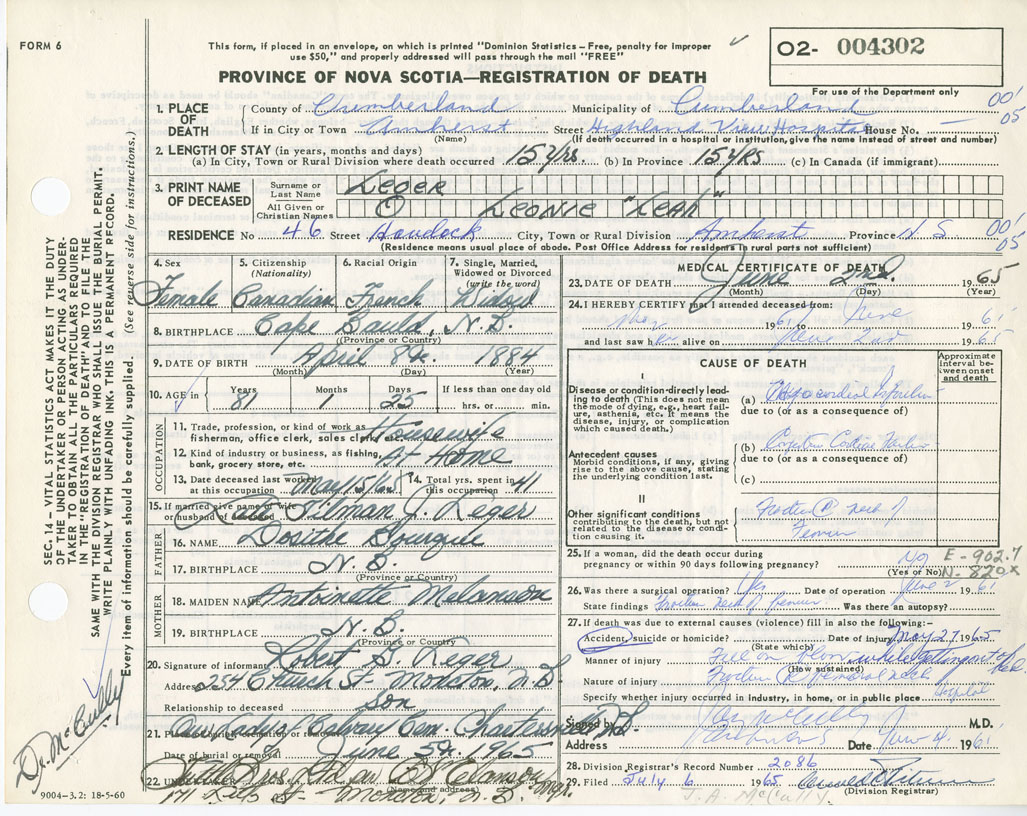 FORM 6
This form, if placed in an envelope, on which is printed "Dominion Statistics – Free, penalty for improper
use $50," and properly addressed will pass through the mail "FREE"
O2- 004302
PROVINCE OF NOVA SCOTIA—REGISTRATION OF DEATH
For use of the Department only
1. PLACE OF DEATH County of Cumberland Municipality of Cumberland 00'
If in City or Town Amherst Street Highland View Hospital House No. — 05
(Name) (If death occurred in a hospital or institution, give the name instead of street and number)
2. LENGTH OF STAY (in years, months and days)
(a) In City, Town or Rural Division where death occurred 15 yrs. (b) In Province 15 yrs (c) In Canada (if immigrant)
3. PRINT NAME OF DECEASED Surname or Last Name Leger
All Given or Christian Names O Leonie "Leah"
RESIDENCE No 46 Street Havelock City, Town or Rural Division Amherst Province N S 00'
05
(Residence means usual place of abode. Post Office Address for residents in rural parts not sufficient)
4. Sex 5. Citizenship (Nationality) 6. Racial Origin 7. Single, Married, Widowed or Divorced (write the word)
Female Canadian French Widow
8. BIRTHPLACE Cape Bauld, N.B.
(Province or Country)
9. DATE OF BIRTH April 8th 1884
(Month) (Day) (Year)
10. AGE in Years Months Days If less than one day old
81 1 25 hrs. or min.
OCCUPATION
11. Trade, profession, or kind of work as fisherman, office clerk, sales clerk, etc. Housewife
12. Kind of industry or business, as fishing, bank, grocery store, etc. At Home
13. Date deceased last worked at this occupation May 15/65 14. Total yrs. spent in 41
15. If married give name of wife or husband of deceased Tilman J. Leger
FATHER
16. NAME Dosithe Bourque
17. BIRTHPLACE N.B.
(Province or Country)
MOTHER
18. MAIDEN NAME Antoinette Melanson
19. BIRTHPLACE N.B.
(Province or Country)
20. Signature of informant Robert G. Leger
Address 234 Church St- Moncton, N.B.
Relationship to deceased son
21. Place of burial, cremation or removal Calvary Cem.
Date of burial or removal June 5th, 1965
22. UNDERTAKER
(Name and address)
St- Moncton, N.B.
9004-3.2: 18-5-60
MEDICAL CERTIFICATE OF DEATH
23. DATE OF DEATH June 2nd 1965
(Month) (Day) (Year)
24. I HEREBY CERTIFY that I attended deceased from:
May 196 to June 196
and last saw her alive on June 2nd 1965
CAUSE OF DEATH
Approximate interval between onset and death
I
Disease or condition directly leading to death (This does not mean the mode of dying, e.g., heart failure, asthenia, etc. It means the disease, injury, or complication which caused death.)
(a) Myocardial Infarction
due to (or as a consequence of)
Antecedent causes
Morbid conditions, if any, giving rise to the above cause, stating the underlying condition last.
(b)
due to (or as a consequence of)
(c)
II
Other significant conditions contributing to the death, but not related to the disease or condition causing it.
Fracture R neck of Femur
25. If a woman, did the death occur during pregnancy or within 90 days following pregnancy? No
(Yes or No)
E - 902.7
N - 820X
26. Was there a surgical operation? Yes Date of operation June 2 196
State findings Fracture neck of femur Was there an autopsy?
27. If death was due to external causes (violence) fill in also the following:-
Accident, suicide or homicide? Date of injury May 27 1965
(State which)
Manner of injury Fell on floor while getting out of bed
(How sustained)
Nature of injury Fracture R femoral neck
Specify whether injury occurred in industry, in home, or in public place. Hospital
Signed by M.D.
Address Amherst Date June 4 196
28. Division Registrar's Record Number 2086
29. Filed July 6 1965
(Division Registrar)
J. A. McCully
SEC. 14 – VITAL STATISTICS ACT MAKES IT THE DUTY
OF THE UNDERTAKER OR PERSON ACTING AS UNDER-
TAKER TO OBTAIN ALL THE PARTICULARS REQUIRED
IN THE "REGISTRATION OF DEATH" AND TO FILE THE
SAME WITH THE DIVISION REGISTRAR WHO SHALL ISSUE THE BURIAL PERMIT.
WRITE PLAINLY WITH UNFADING INK. THIS IS A PERMANENT RECORD.
Every item of information should be carefully supplied. (See reverse side for instructions.)
Dr. McCully